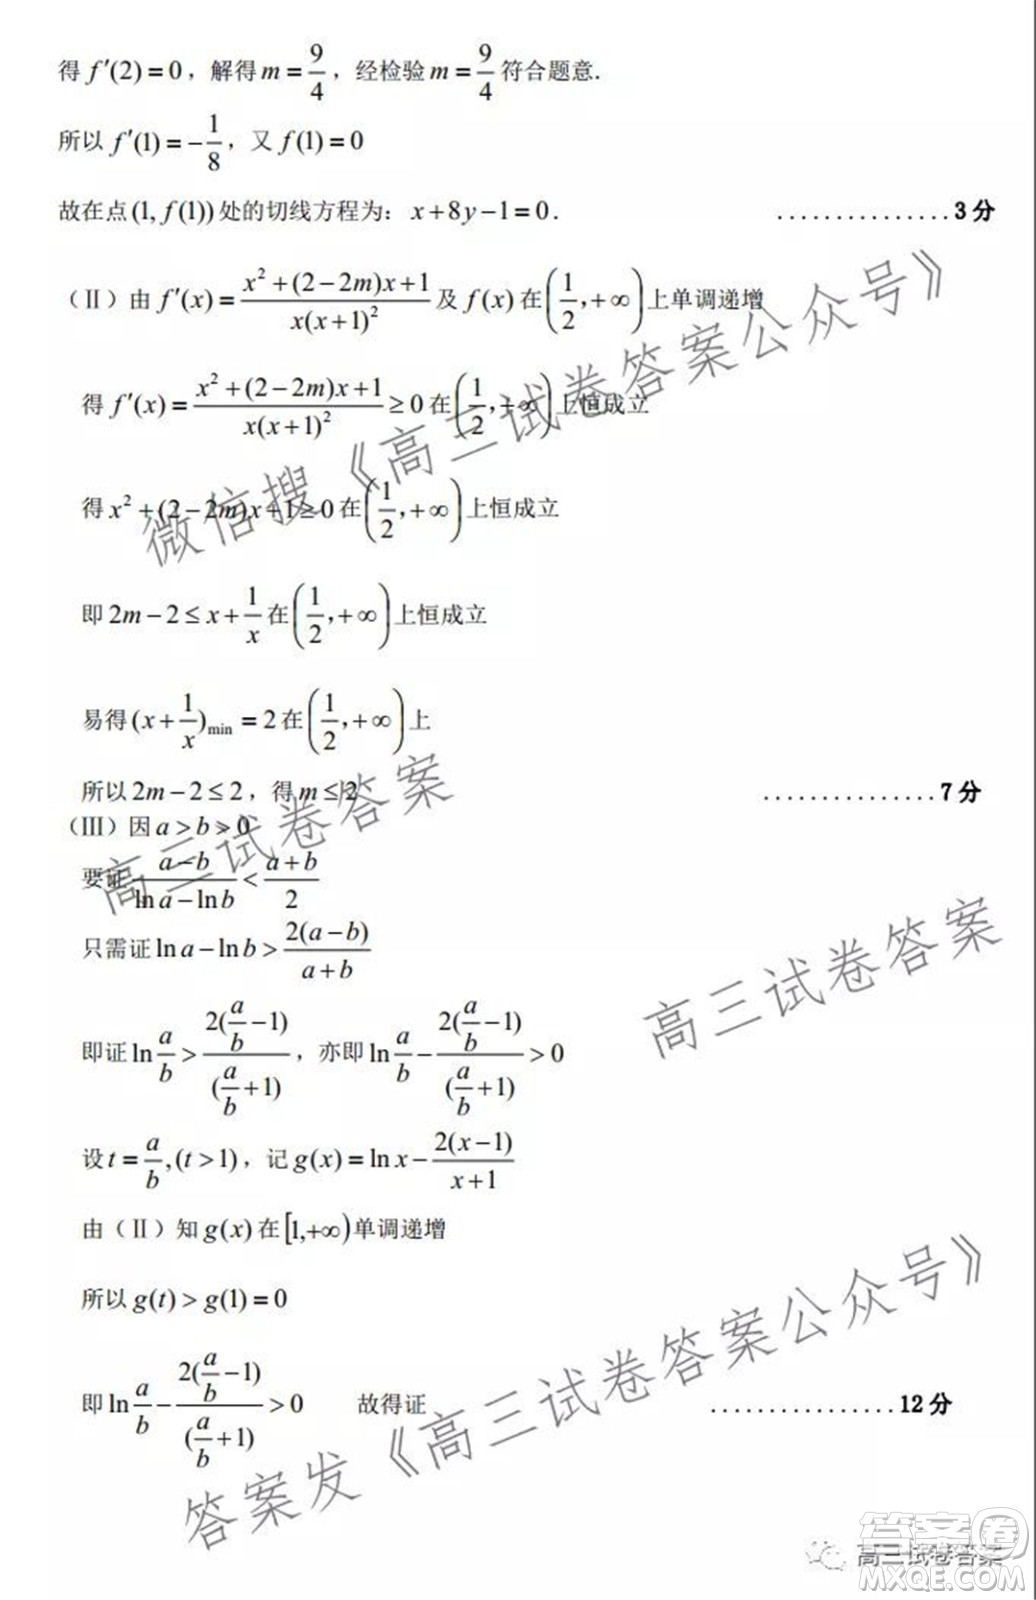 得 f′(2)=0，解得 m=9/4，经检验 m=9/4 符合题意.
所以 f′(1)=-1/8，又 f(1)=0
故在点(1, f(1))处的切线方程为：x+8y-1=0. ...............3 分
（Ⅱ）由 f′(x)=(x²+(2-2m)x+1)/(x(x+1)²) 及 f(x) 在(1/2,+∞)上单调递增
得 f′(x)=(x²+(2-2m)x+1)/(x(x+1)²)≥0 在(1/2,+∞)上恒成立
得 x²+(2-2m)x+1≥0 在(1/2,+∞)上恒成立
即 2m-2≤x+1/x 在(1/2,+∞)上恒成立
易得(x+1/x)min=2 在(1/2,+∞)上
所以 2m-2≤2，得 m≤2 ...............7 分
（Ⅲ）因 a>b>0
要证 (a-b)/(ln a-ln b)<(a+b)/2
只需证 ln a-ln b>2(a-b)/(a+b)
即证 ln a/b>2(a/b-1)/(a/b+1)，亦即 ln a/b-2(a/b-1)/(a/b+1)>0
设 t=a/b,(t>1)，记 g(x)=ln x-2(x-1)/(x+1)
由（Ⅱ）知 g(x) 在[1,+∞)单调递增
所以 g(t)>g(1)=0
即 ln a/b-2(a/b-1)/(a/b+1)>0 故得证 ................12 分
微信搜《高三试卷答案公众号》
高三试卷答案
高三试卷答案
答案发《高三试卷答案公众号》
高三试卷答案
答案卷
MXQE.COM